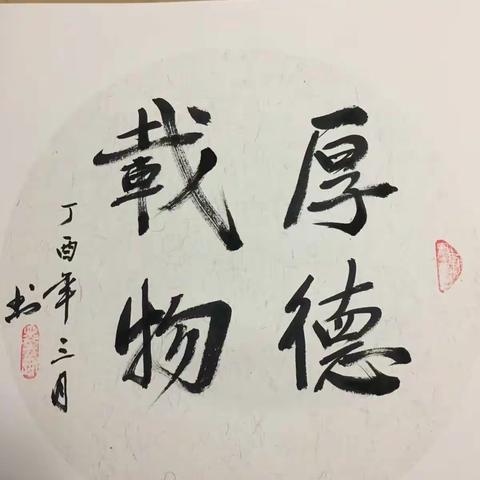 厚德
載物
丁酉年三月
书